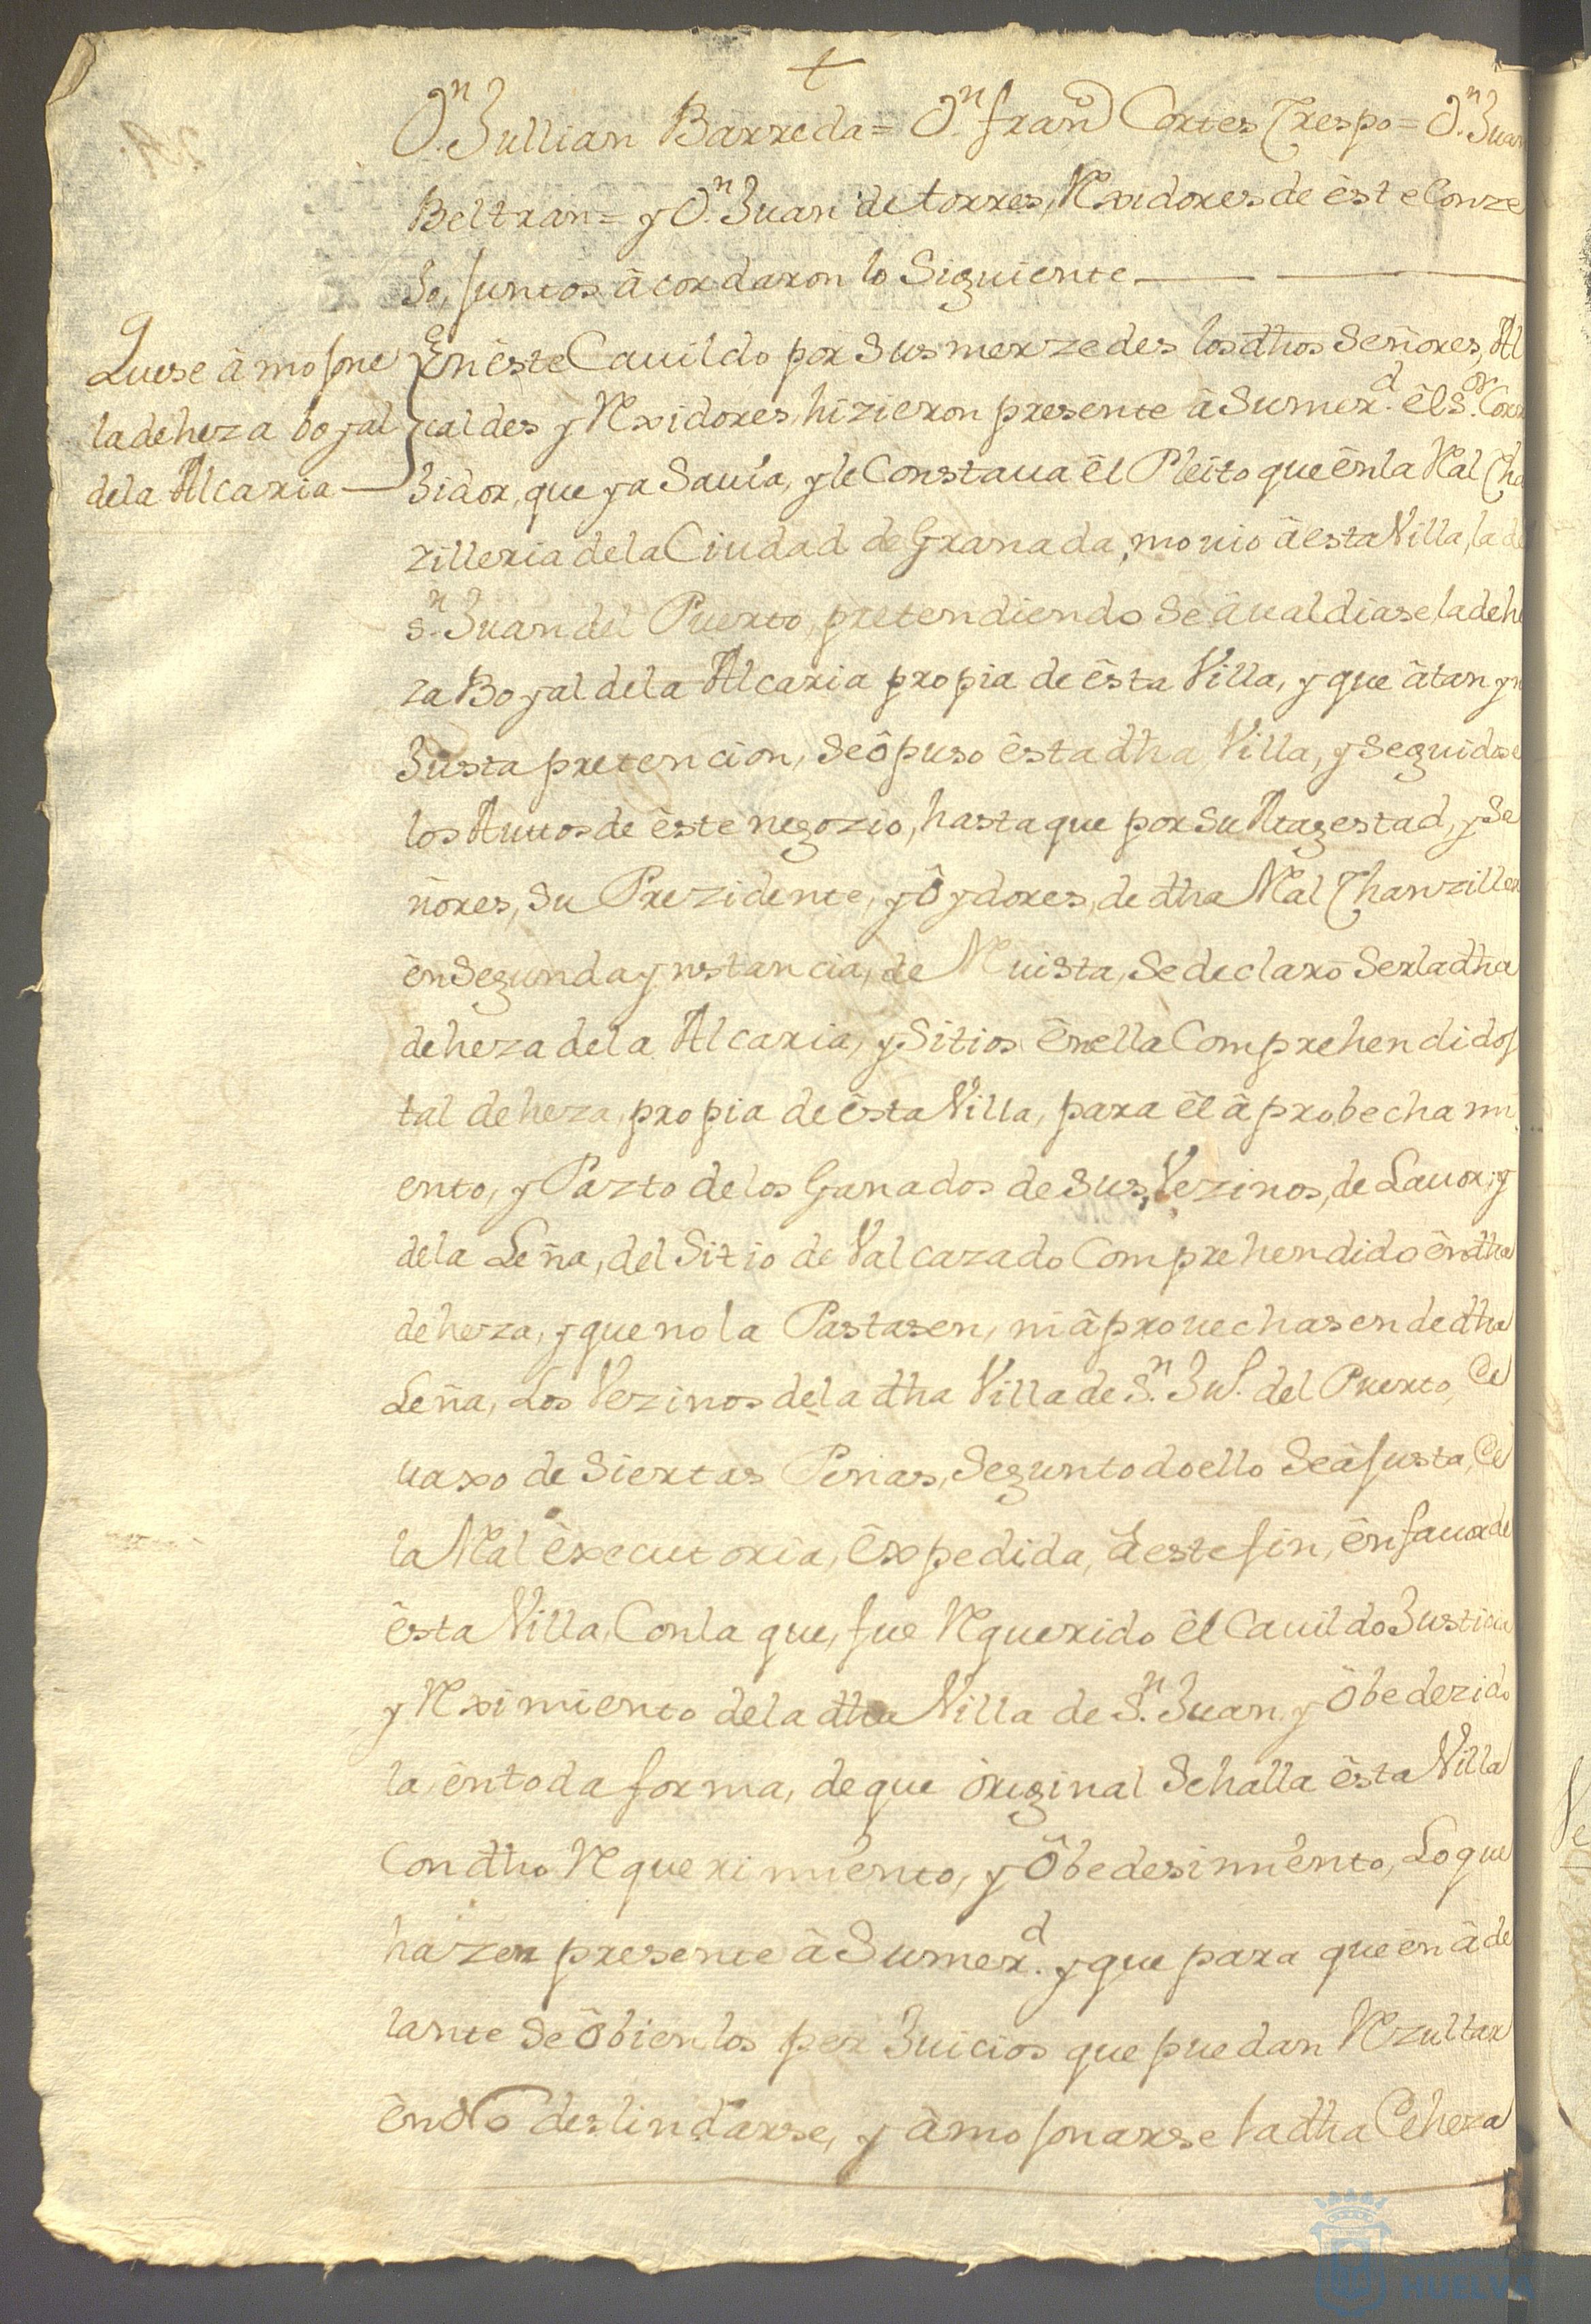 +
Dn. Jullian Barreda = Dn. franco Cortes Crespo = Dn. Juan
Beltran = y Dn. Juan de torres, Rexidores de êste Conze
Jo, juntos âcordaron lo Siguiente
Que se âmojone
la deheza boyal
de la Alcaria
En êste Cauildo por Sus merzedes los dhos Señores, Al
caldes y Rexidores, hizieron presente â Sumerd. êl Sor. Corre
Jidor, que ya Sauia, y le Constaua êl Pleito que ên la Ral Cha
zilleria de la Ciudad de Granada, mouio â esta Villa, la de
Sn. Juan del Puerto, pretendiendo se âualdiase, la dehe
za Boyal de la Alcaria propia de êsta Villa, y que âtan yn
Justa pretencion, se ôpuso êsta dha Villa, y Seguidose
los Autos de êste negozio, hasta que por Su Magestad, y Se
ñores, Su Prezidente, y Ôydores, de dha Ral Chanziller
ên Segunda ynstancia, de Reuista, Se declarô Ser la dha
deheza de la Alcaria, y Sitios ên ella Comprehendidos
tal deheza, propia de êsta Villa, para êl âprobechami
ento, y Pazto de los Ganados de Sus Vezinos, de Lauor, y
de la Leña, del Sitio de Valcazado Comprehendido ên dha
deheza, y que no la Pastasen, ni âprouechasen de dha
Leña, Los Vezinos de la dha Villa de Sn. Jul. del Puerto, De
uaxo de Siertas Penas, Segun todo ello Se âjusta, De
la Ral êxecutoria, êxpedida, â este fin, ên fauor de
êsta Villa, Con la que, fue Requerido êl Cauildo Justicia
y Reximiento de la dha Villa de Sn. Juan y ôbedezido
la, ên toda forma, de que ôriginal Se halla êsta Villa
Con dho Requerimiento, y Ôbedesimiento, Lo que
hazen presente â Sumerd. y que para que ên âde
lante Se ôbien los perJuicios que puedan Rezultar
ên No deslindarse, y âmojonarse la dha Deheza
HUELVA